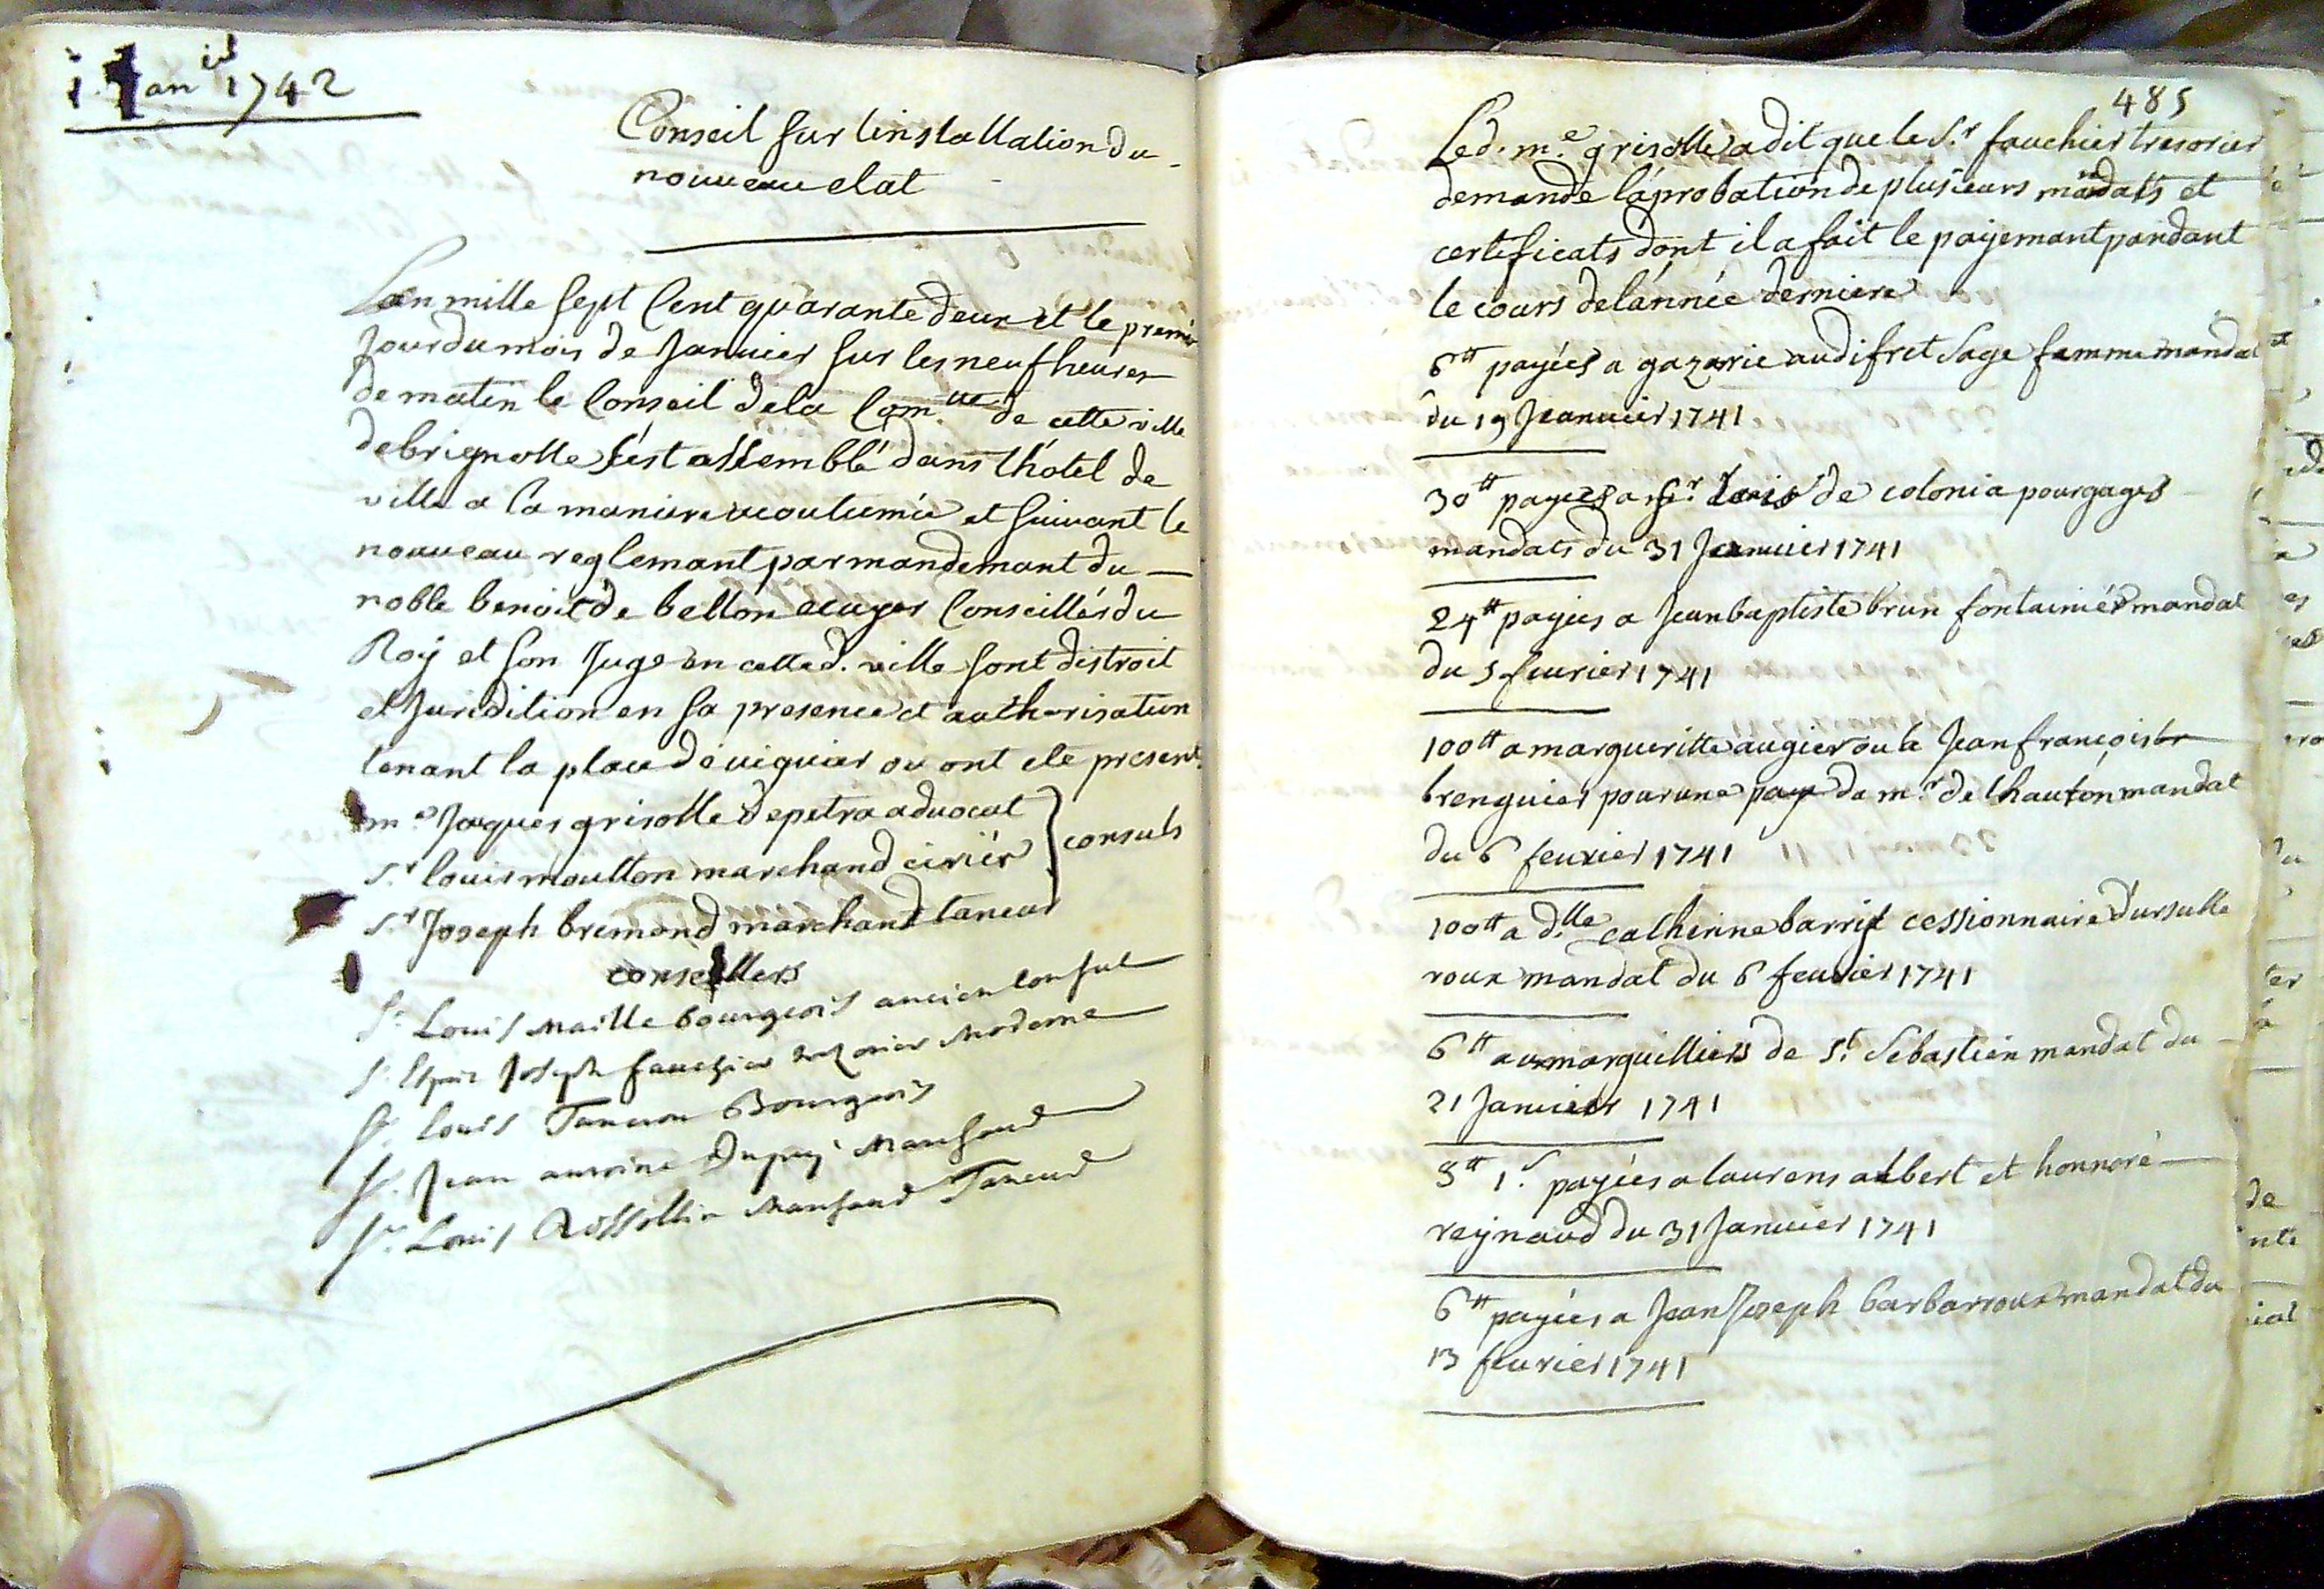 1 Janier 1742
Conseil sur linstallation du
nouveau etat
Lan mille sept Cent quarante deux et le premier
Jour du mois de Janvier sur les neuf heures
de matin le Conseil dela Com.tté de cette ville
de brignolle s'est assemblé dans l'hotel de
ville a la maniere acoutumée et suivant le
nouveau reglemant par mandemant du
noble benoit de bellon ecuyer Conseiller du
Roy et son Juge en cette d. ville sont distroit
et Juridition en sa presence et authorisation
tenant la place de viguier ou ont ete present.
m.e Jaques grisolle depetra advocat
s.r louis moutton marchand cirier consuls
s.r Joseph bremond marchand taneur
conseillers
s.r Louis Maille bourgeois ancien Consul
s.r Esprit Joseph fauchier trezorier Moderne
s.r Louis Taneron Bourgeois
s.r Jean antoine Dupuy Marchand
s.r Louis Rossollin Marchand Taneur
485
Led. m.e grisolle a dit que le s.r fauchier tresorier
demande láprobation de plusieurs mandats et
certeficats dont il a fait le payemant pandant
le cours delánnée derniere
6tt payées a gazarie audifret sage famme mandat
du 19 Jeanvier 1741
30tt payees a sr. Louis de colonia pour gages
mandats du 31 Jeanvier 1741
24tt payées a Jean baptiste brun fontainiér mandat
du 5 feurier 1741
100tt a margueritte augier ou a Jean françois br
brenguier pour une paye de m.r de l'hauton mandat
du 6 feurier 1741
100tt a d.lle catherine barrif cessionnaire d'ursulle
roux mandat du 6 feurier 1741
6tt aux marguilliers de S.t Sebastien mandat du
21 Janvier 1741
3tt 1.s payées a laurens albert et honnoré
reynaud du 31 Janvier 1741
6tt payées a Jean Joseph barbarroux mandat du
13 feurier 1741